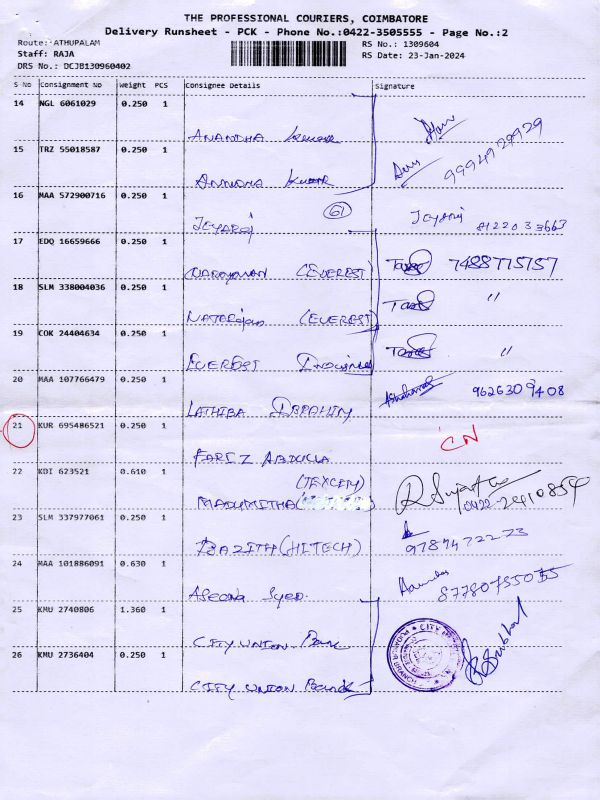 THE PROFESSIONAL COURIERS, COIMBATORE
Delivery Runsheet - PCK - Phone No.:0422-3505555 - Page No.:2
Route: ATHUPALAM RS No.: 1309604
Staff: RAJA RS Date: 23-Jan-2024
DRS No.: DCJB130960402
S No Consignment No Weight PCS Consignee Details Signature
14 NGL 6061029 0.250 1
ANANDHA Kumar
9994929929
15 TRZ 55018587 0.250 1
Kumar
16 MAA 572900716 0.250 1 61
Jeyaraj Jeyaraj 8122033663
17 EDQ 16659666 0.250 1
NARAYANAN (EVEREST) 7488775757
18 SLM 338004036 0.250 1 "
NATARAJAN (EVEREST)
19 COK 24404634 0.250 1 "
EVEREST
20 MAA 107766479 0.250 1 9626309408
LATHIBA IBRAHIM
21 KUR 695486521 0.250 1 CN
FARIZ ABDULLA
22 KDI 623521 0.610 1 (TEXCITY)
MADUMITHA R Sujatha 0422-2410854
23 SLM 337977061 0.250 1
BAZITH (HITECH) 9787472273
24 MAA 101886091 0.630 1
Syed 87780755035
25 KMU 2740806 1.360 1
CITY UNION Bank
26 KMU 2736404 0.250 1
CITY UNION Bank